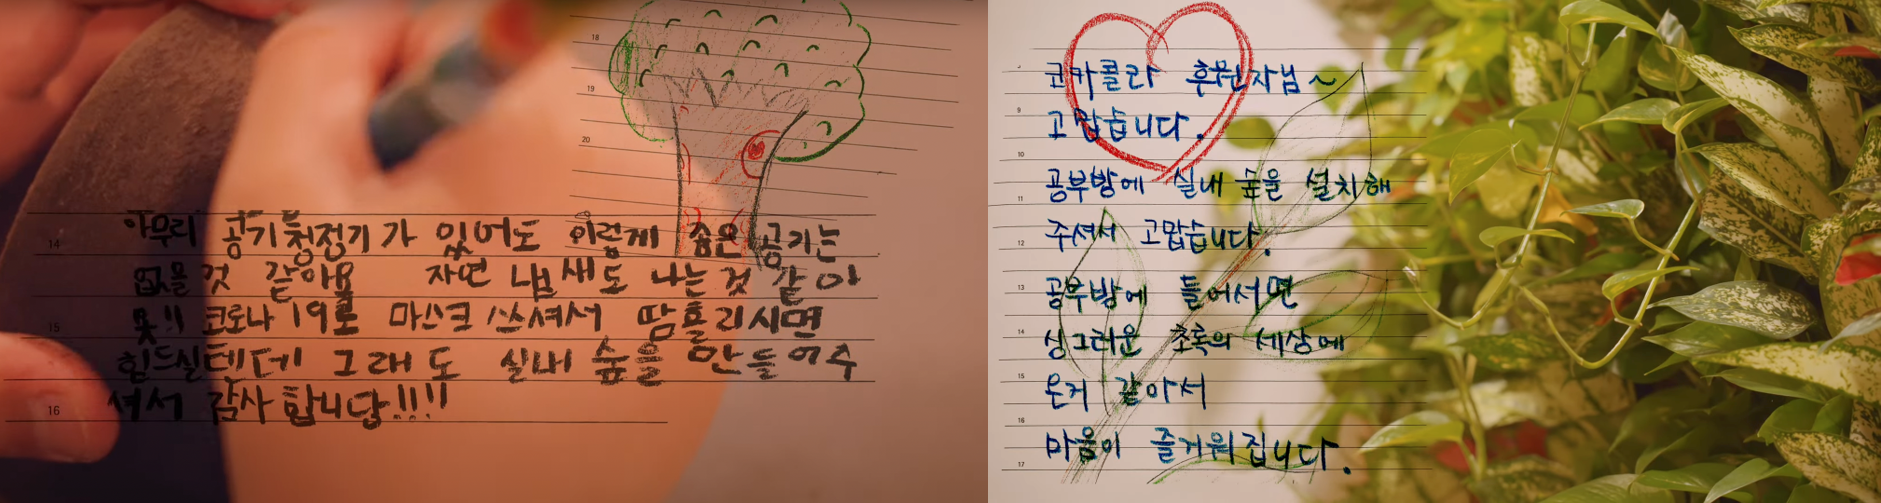 18
19
20
14 아무리 공기청정기가 있어도 이렇게 좋은 공기는
없을 것 같아요 자연 냄새도 나는 것 같아
15 욧!! 코로나19로 마스크 쓰셔서 땀흘리시면
힘드실텐데 그래도 실내 숲을 만들어주
16 셔서 감사합니당!!!!
코카콜라 후원자님~
9 고맙습니다.
10
공부방에 실내 숲을 설치해
11
주셔서 고맙습니다.
12
13 공부방에 들어서면
14 싱그러운 초록의 세상에
15 온거 같아서
16
마음이 즐거워집니다.
17